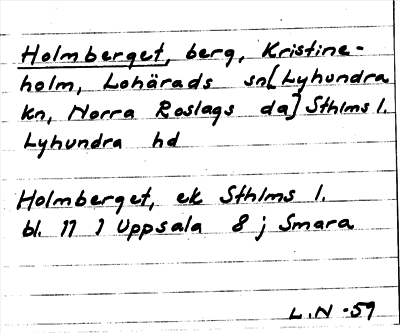 Holmberget, berg, Kristine-
holm, Lohärads sn[Lyhundra
kn, Norra Roslags da] Sthlms l.
Lyhundra hd
Holmberget, ek Sthlms l.
bl. 11 1 Uppsala 8 j Smara
L.N -59